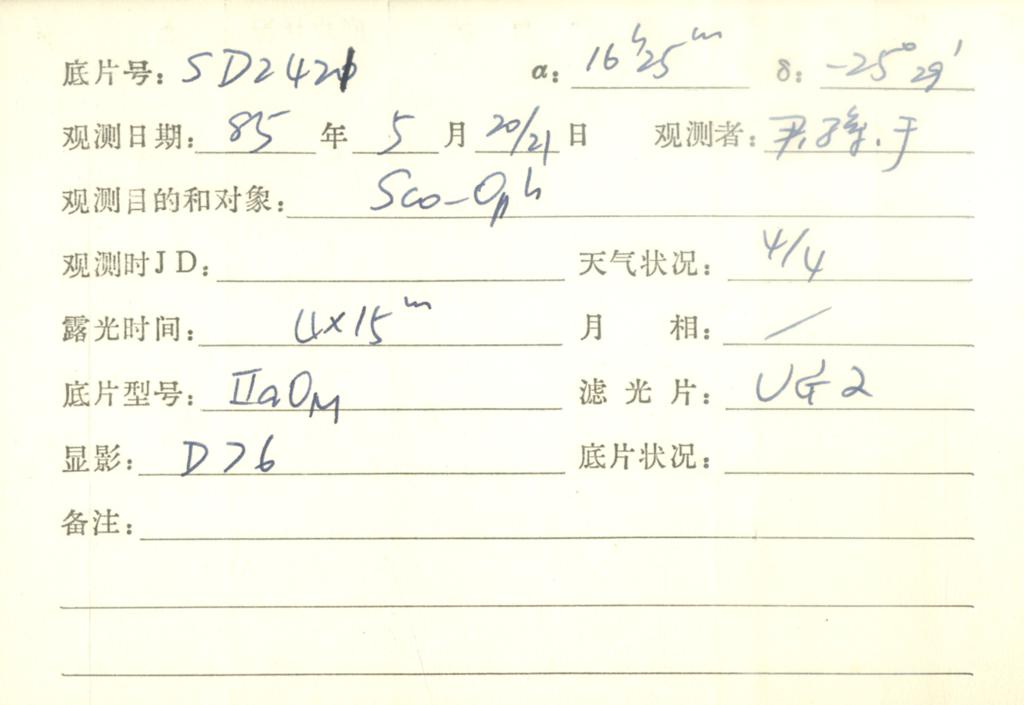 底片号: SD2421 α: 16ʰ25ᵐ δ: -25°29′
观测日期: 85 年 5 月 20/21 日 观测者: 尹. 于
观测目的和对象: Sco-Oph
观测时JD: 天气状况: 4/4
露光时间: 4×15ᵐ 月 相: /
底片型号: IIaOM 滤光片: UG2
显影: D76 底片状况:
备注: